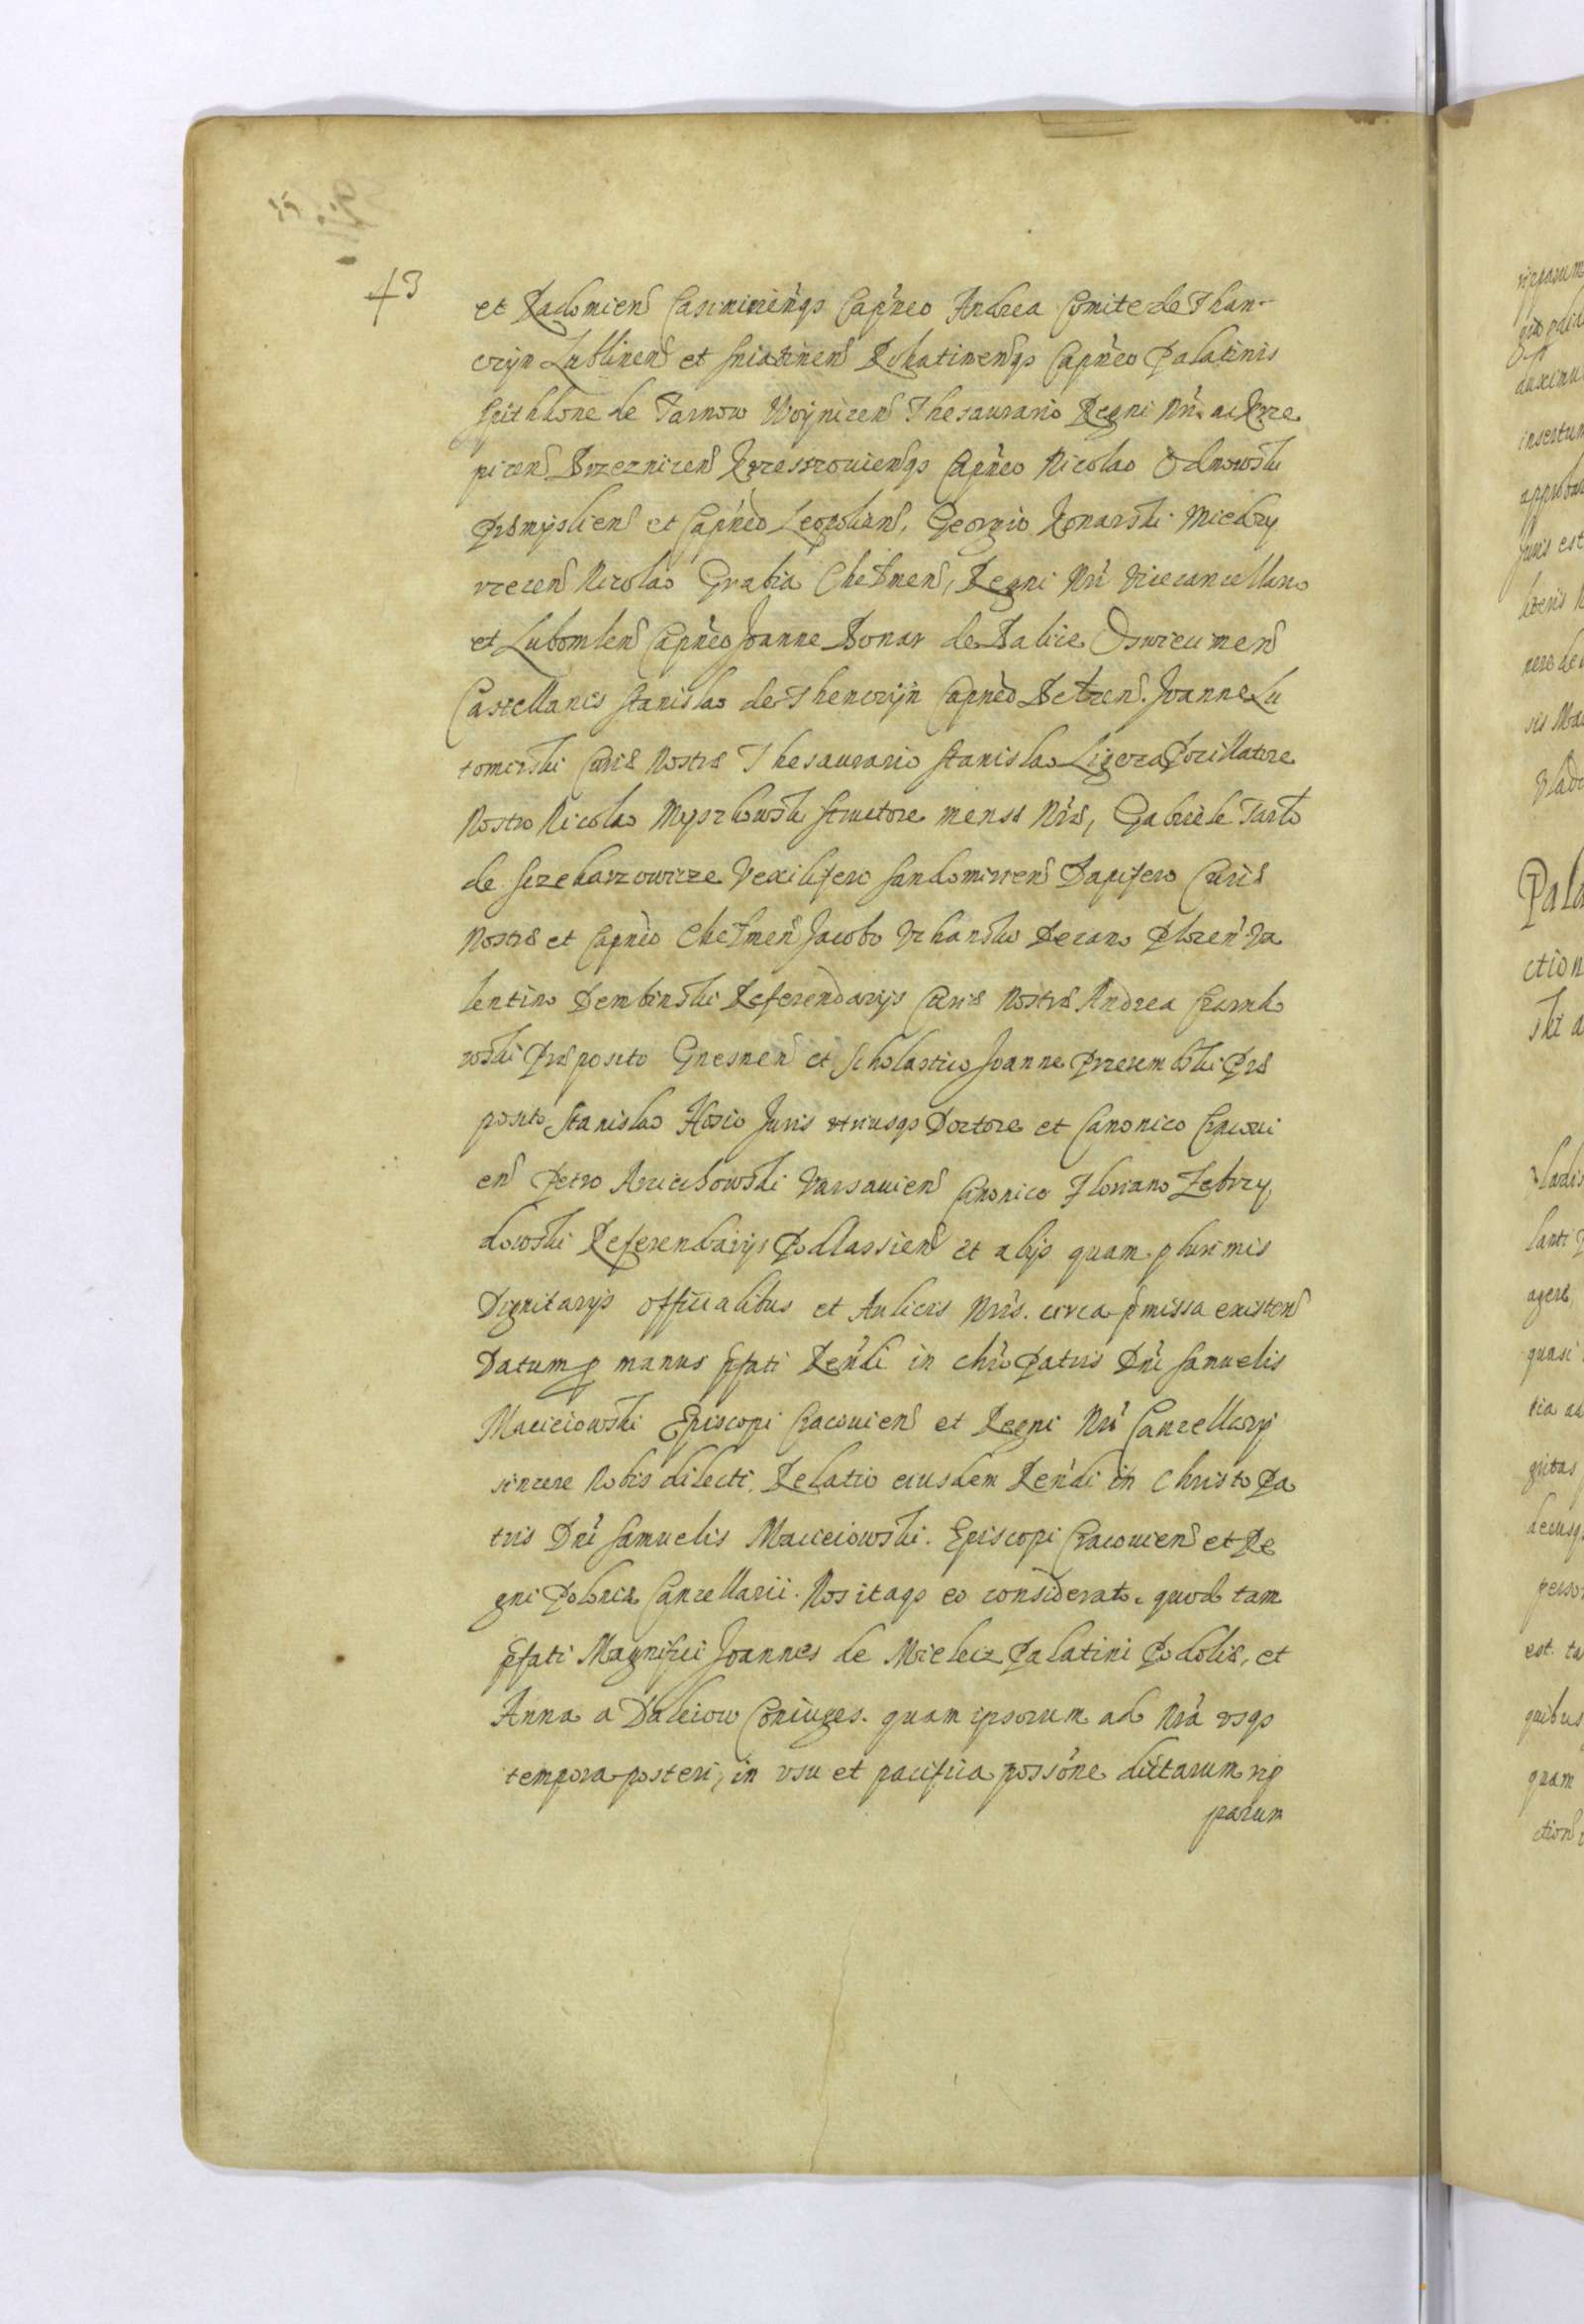 43
et Radomien Casimirien̄qз Capn̄eo Andrea Comite de Than-
czyn Lublinen et Sniatinen Rohatinenqз Capn̄eo Palatinis
Spithkone de Tarnow Woynicen Thesaurario Regni Nri. ac Krze
picen Brzeznicen Krzeszoviensqз Capn̄eo Nicolao Odnowski
Præmyslien et Capn̄eo Leopolien, Georgio Konarski Miedzy
rzecen Nicolao Grabia Chełmen, Regni Nri Vicecancellario
et Lubomlen Capn̄eo Joanne Bonar de Balice Oswiecimen
Castellanis Stanislao de Thenczyn Capn̄eo Bełzen. Joanne Lu
tomirski Curiæ Nostræ Thesaurario Stanislao Ligeza Pocillatore
Nostro Nicolao Myszkowski Structore mensæ Nræ, Gabriele Tarlo
de Sczekarzowicze Vexilifero Sandomirien Dapifero Curiæ
Nostræ et Capn̄eo Chełmen Jacobo Uchanski Decano Plocen Va
lentino Dembinski Referendarijs Curiæ Nostræ Andrea Czarnko
wski Præposito Gnesnen et Scholastico Joanne Przerembski Præ
posito Stanislao Hosio Juris utriusqз Doctore et Canonico Cracovi
en Petro Arciechowski Varsavien Canonico Floriano Zebrzy,
dowski Referendarijs Podlassien et alijs quam plurimis
Dignitarijs Officialibus et Aulicis Nris. circa p̄missa existen
Datum p manus p̄fati Rendi in Chro Patris Dni Samuelis
Macieiowski Episcopi Cracovien et Regni Nri Cancellarij
sincere Nobis dilecti. Relatio eiusdem Rendi in Christo Pa
tris Dni Samuelis Macieiowski. Episcopi Cracovien et Re
gni Poloniæ Cancellarii. Nos itaqз eo considerato. quod tam
p̄fati Magnifici Joannes de Mielecz Palatini Podoliæ, et
Anna a Daleiow Coniuges. quam ipsorum ad Nra usqз
tempora posteri, in usu et pacifica possone dictarum rip
parum